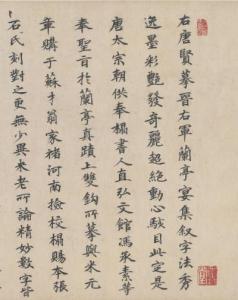 右唐賢摹晉右軍蘭亭宴集叙字法秀
逸墨彩艷發奇麗超絶動心駭目此定是
唐太宗朝供奉搨書人直弘文館馮承素等
奉聖旨於蘭亭真蹟上雙鈎所摹與米元
章購于蘇才翁家褚河南檢校搨賜本張
石氏刻對之更無少異米老所論精妙數字皆